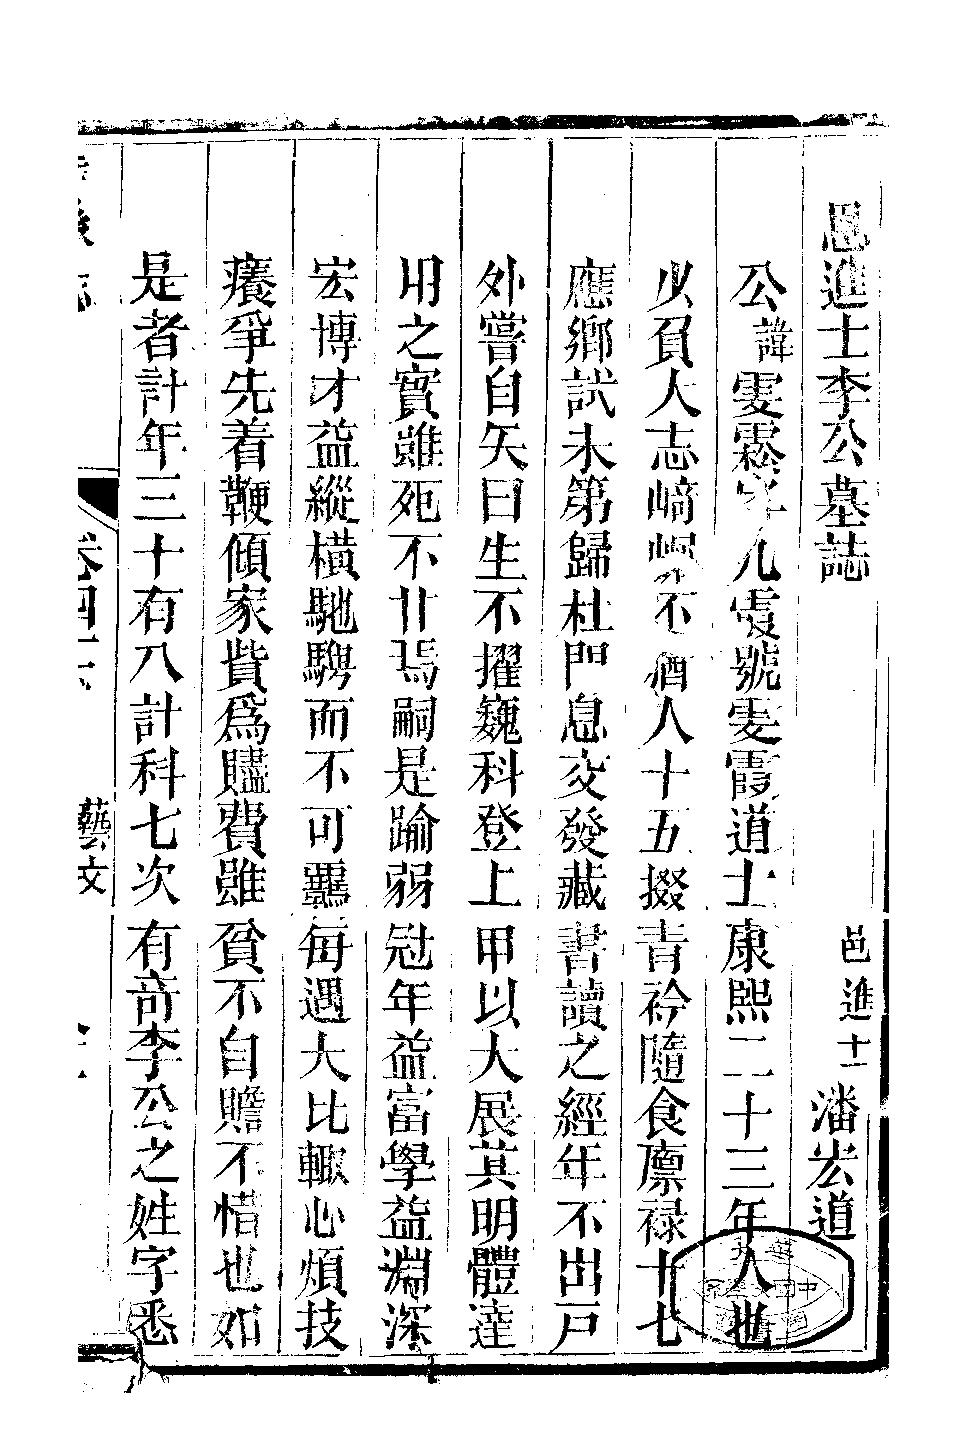 恩進士李公墓誌
邑進士潘宏道
公諱雯霧字九霞號雯霞道士康熙二十三年人也
少負大志崎嶇不猶人十五掇青衿隨食廩祿十七
應鄉試未第歸杜門息交發藏書讀之經年不出戸
外嘗自矢曰生不擢巍科登上甲以大展其明體達
用之實雖死不甘焉嗣是踰弱冠年益富學益淵深
宏博才益縱橫馳騁而不可羈每遇大比輙心煩技
癢爭先着鞭傾家貲爲贐費雖貧不自贍不惜也如
是者計年三十有八計科七次有奇李公之姓字悉
卷四下
藝文